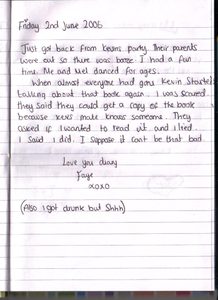 Friday 2nd June 2006
Just got back from Kevins party. Their parents
were out so there was booze. I had a fun
time. Me and Mel danced for ages.
When almost everyone had gone Kevin started
talking about that book again. I was scared
they said they could get a copy of the book
because someone. They
asked if I wanted to read it. and I lied.
I said I did. I suppose it can't be that bad
Love you diary
Faye
xoxo
(Also I got drunk but Shhh)